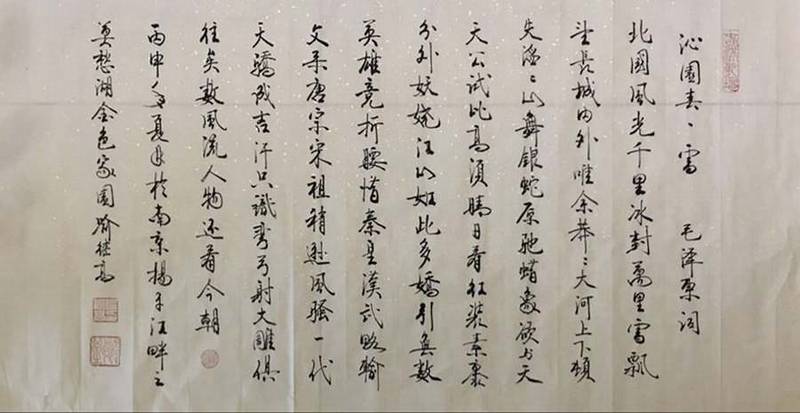 沁園春、雪 毛泽東词
北國風光千里冰封萬里雪飄
望長城内外唯余莽〻大河上下頓
失滔〻山舞銀蛇原驰蜡象欲与天
天公试比高須晴日看红装素裹
分外妖娆江山如此多嬌引無数
英雄竞折腰惜秦皇漢武略输
文采唐宗宋祖稍逊風骚一代
天驕成吉汗只識彎弓射大雕俱
往矣数風流人物还看今朝
丙申年夏月於南京揚子江畔之
莫愁湖金色家園喻继高